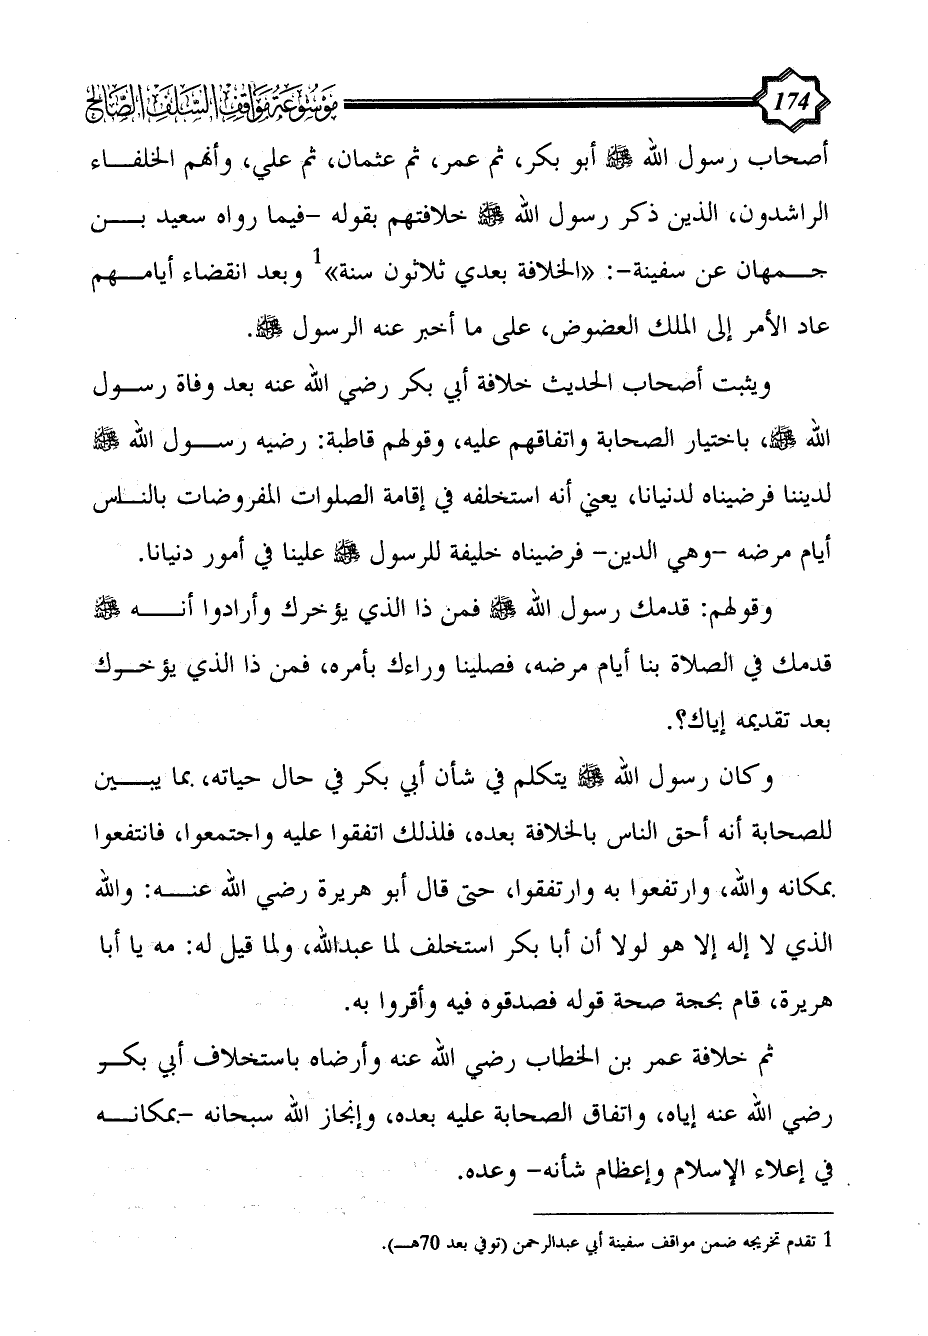 174 موسوعة مواقف السلف الصالح
أصحاب رسول الله ﷺ أبو بكر، ثم عمر، ثم عثمان، ثم علي، وأنهم الخلفاء
الراشدون، الذين ذكر رسول الله ﷺ خلافتهم بقوله -فيما رواه سعيد بن
جمهان عن سفينة-: «الخلافة بعدي ثلاثون سنة»1 وبعد انقضاء أيامهم
عاد الأمر إلى الملك العضوض، على ما أخبر عنه الرسول ﷺ.
ويثبت أصحاب الحديث خلافة أبي بكر رضي الله عنه بعد وفاة رسول
الله ﷺ، باختيار الصحابة واتفاقهم عليه، وقولهم قاطبة: رضيه رسول الله ﷺ
لديننا فرضيناه لدنيانا، يعني أنه استخلفه في إقامة الصلوات المفروضات بالناس
أيام مرضه -وهي الدين- فرضيناه خليفة للرسول ﷺ علينا في أمور دنيانا.
وقولهم: قدمك رسول الله ﷺ فمن ذا الذي يؤخرك وأرادوا أنه ﷺ
قدمك في الصلاة بنا أيام مرضه، فصلينا وراءك بأمره، فمن ذا الذي يؤخرك
بعد تقديمه إياك؟.
وكان رسول الله ﷺ يتكلم في شأن أبي بكر في حال حياته، بما يبين
للصحابة أنه أحق الناس بالخلافة بعده، فلذلك اتفقوا عليه واجتمعوا، فانتفعوا
بمكانه والله، وارتفعوا به وارتفقوا، حتى قال أبو هريرة رضي الله عنه: والله
الذي لا إله إلا هو لولا أن أبا بكر استخلف لما عبدالله، ولما قيل له: مه يا أبا
هريرة، قام بحجة صحة قوله فصدقوه فيه وأقروا به.
ثم خلافة عمر بن الخطاب رضي الله عنه وأرضاه باستخلاف أبي بكر
رضي الله عنه إياه، واتفاق الصحابة عليه بعده، وإنجاز الله سبحانه -بمكانه
في إعلاء الإسلام وإعظام شأنه- وعده.
1 تقدم تخريجه ضمن مواقف سفينة أبي عبدالرحمن (توفي بعد 70هـ).